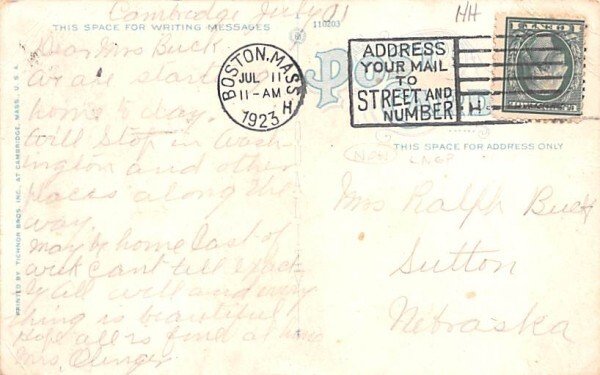 Cambridge July 11
THIS SPACE FOR WRITING MESSAGES
110203
HH
Dear Mrs Buck
We are starting
home to day.
Will Stop in Wash
ington and other
places along the
way.
may be home last of
week cant tell exact
ly All well and every
thing is beautiful
Hope all is fine at home
Mrs.
PRINTED BY TICHNOR BROS. INC., AT CAMBRIDGE, MASS. U. S. A.
BOSTON, MASS
JUL 11
11-AM
1923
H
ADDRESS
YOUR MAIL
TO
STREET AND
NUMBER
H
1 CENT 1
THIS SPACE FOR ADDRESS ONLY
LNGR
Mrs Ralph Buck
Sutton
Nebraska